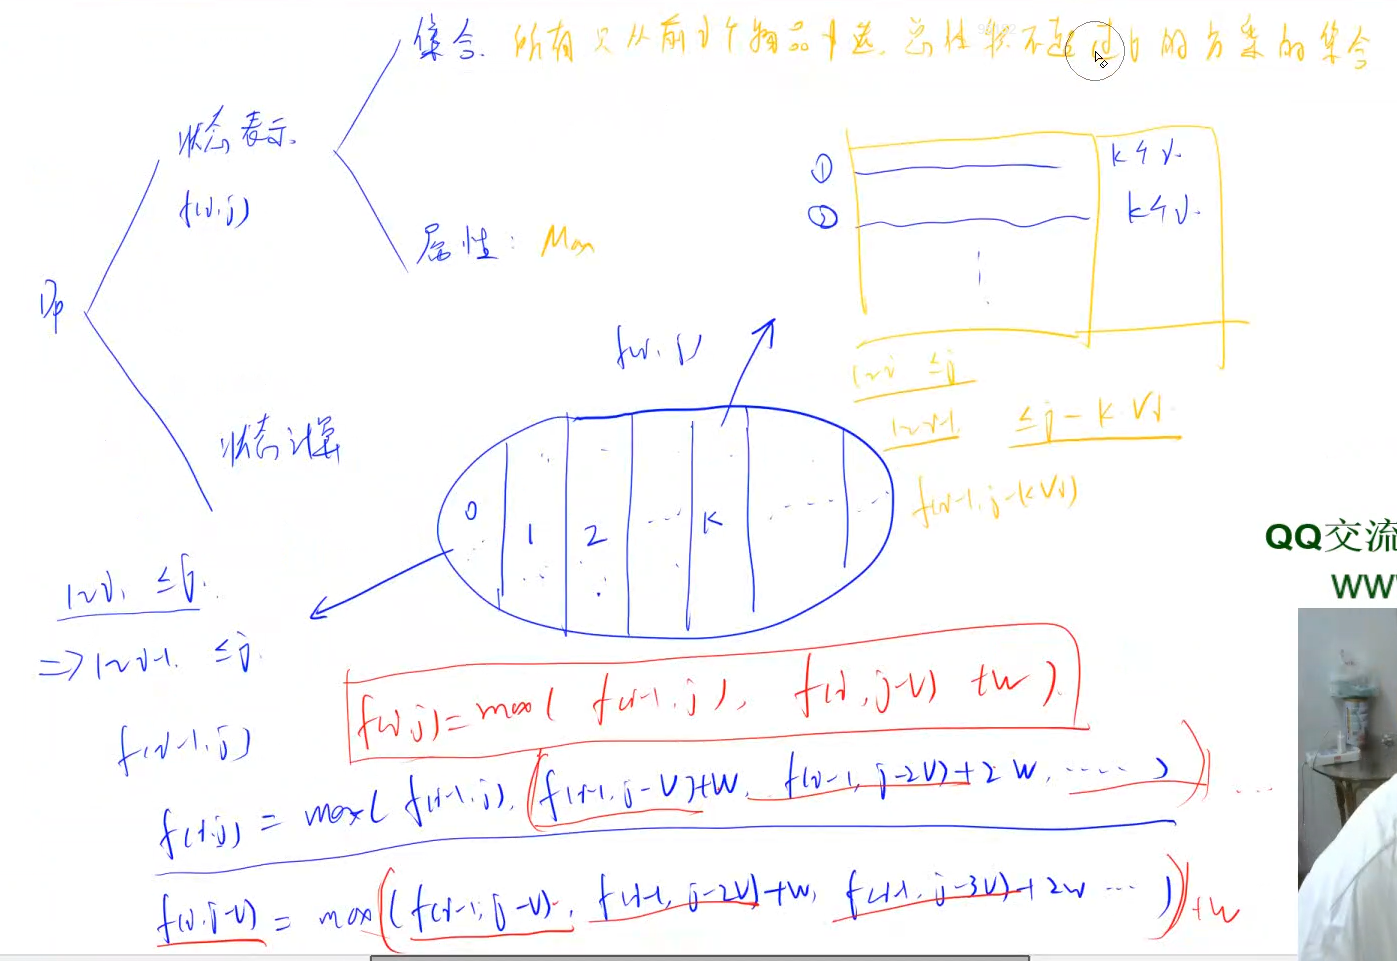 集合. 所有只从前i个物品中选,总体积不超过j的方案的集合
状态表示.
f(i,j)
属性: Max
① k个i.
② k个i.
Dp
f(i,j)
1~i ≤j
1~i-1. ≤j-k·Vi
f(i-1, j-kVi)
状态计算
0 1 2 ...... K ......
QQ交流
WW
1~i. ≤j.
=> 1~i-1. ≤j.
f(i-1,j)
f(i,j)=max( f(i-1,j), f(i,j-V)+W ).
f(i,j) = max( f(i-1,j), f(i-1,j-V)+W, f(i-1,j-2V)+2W, ...... ) ....
f(i,j-V) = max( f(i-1,j-V), f(i-1,j-2V)+W, f(i-1,j-3V)+2W ... ) +W